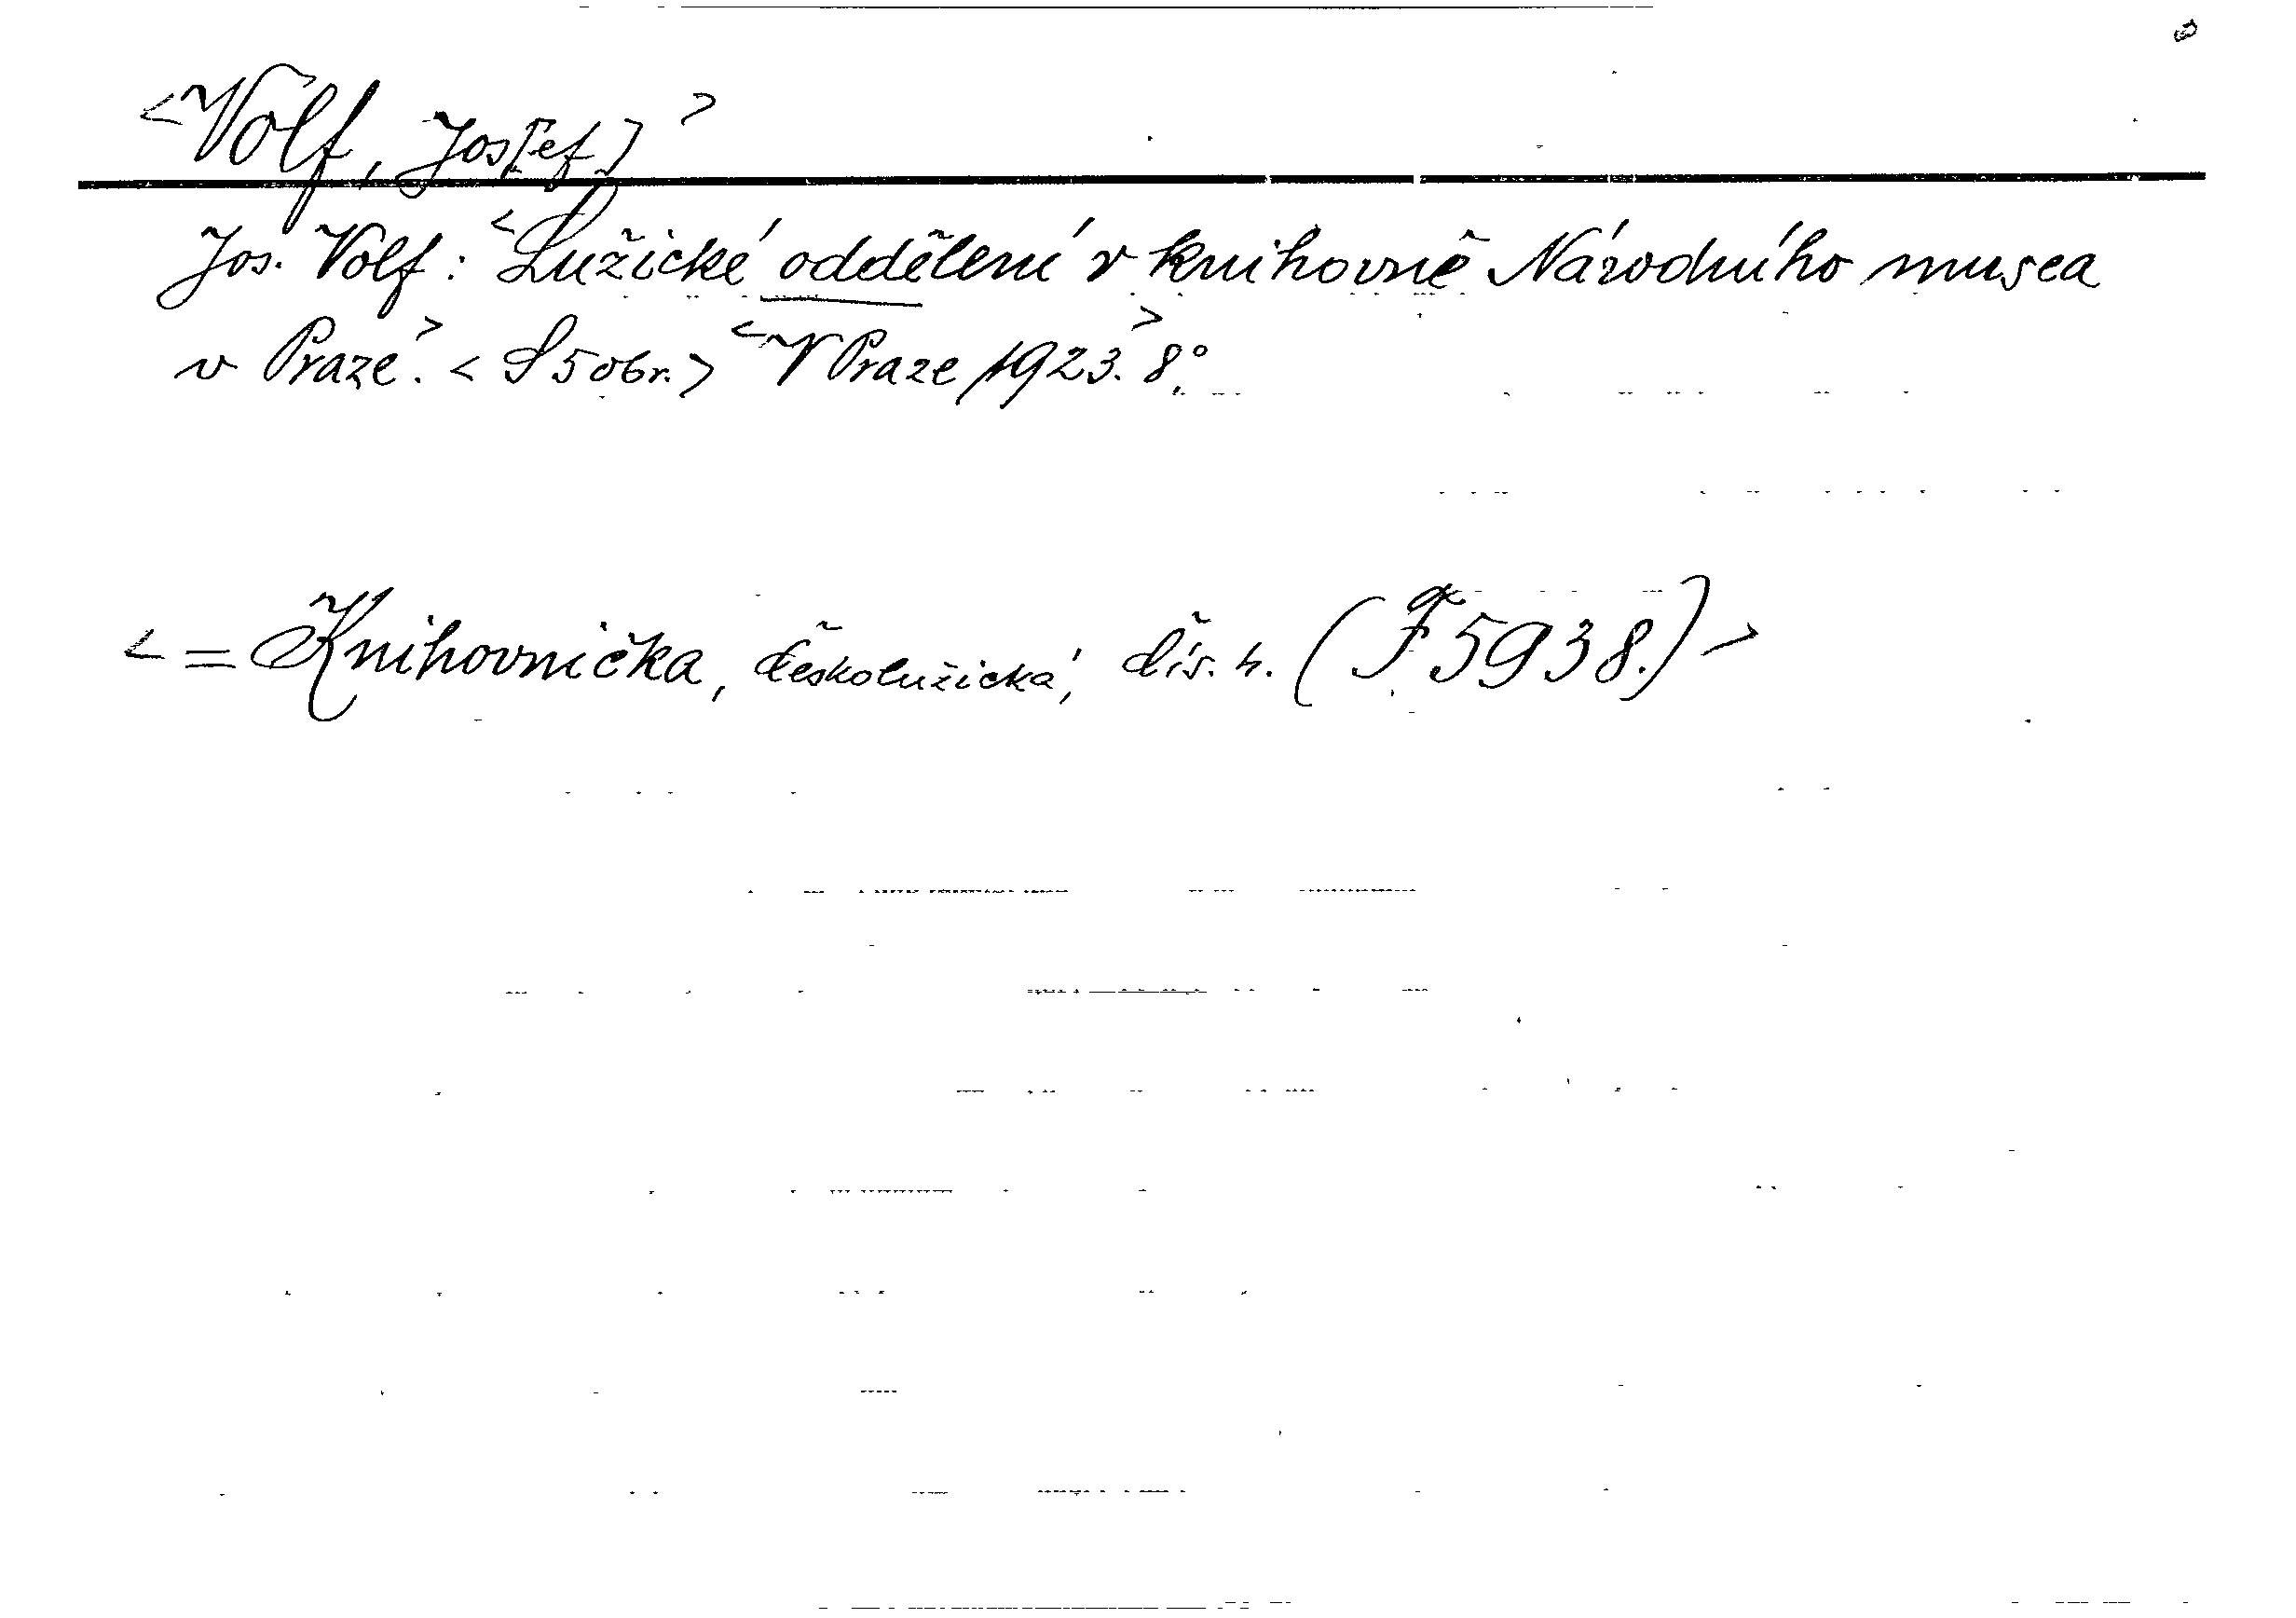 <Volf, Jos[ef]>
Jos. Volf: <Lužické oddělení v knihovně Národního musea
v Praze.> <S 5 obr.> <V Praze 1923.> 8°.
<= Knihovnička, českolužická, čís. 4. (F 5938.)>